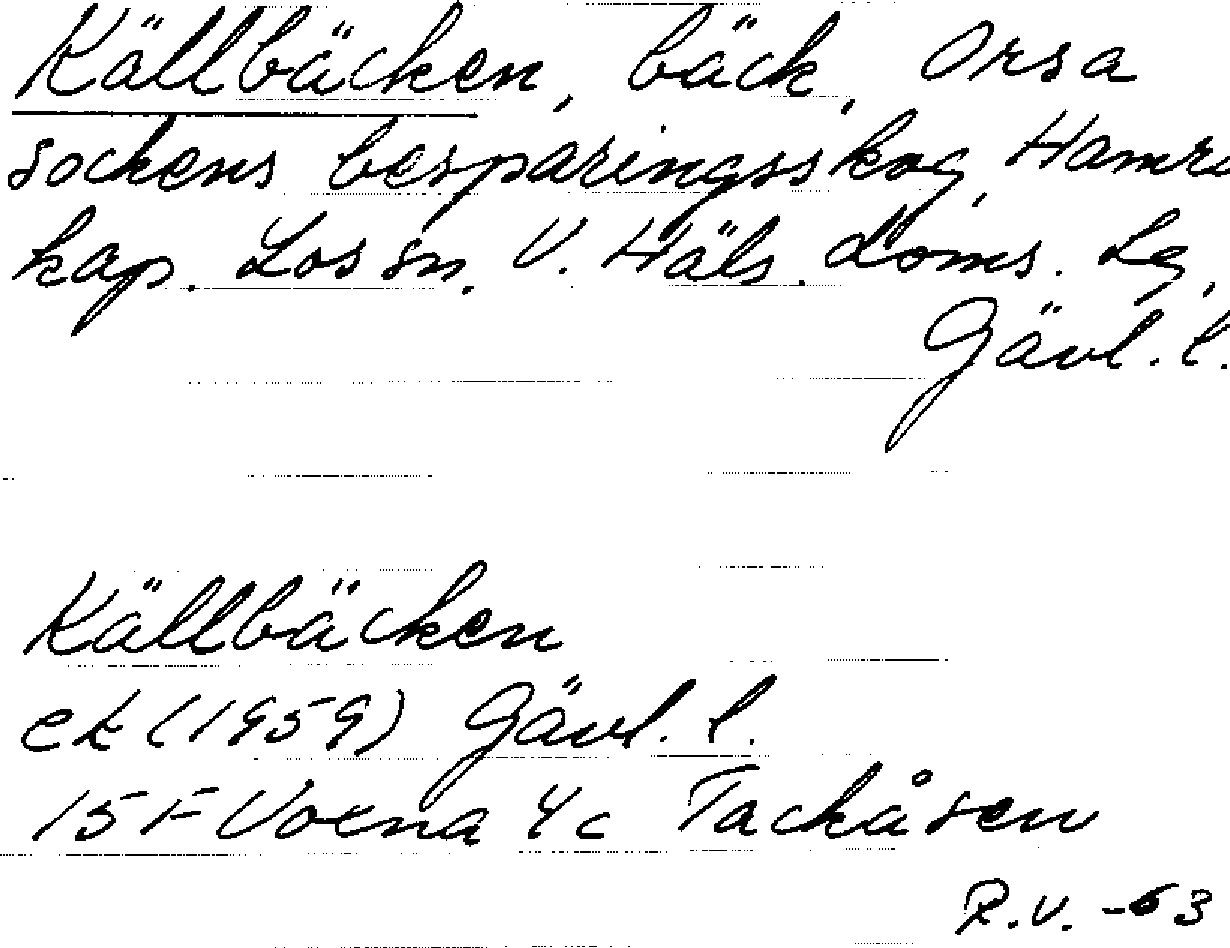 Källbäcken, bäck, Orsa
sockens besparingsskog, Hamra
kap. Los sn. V. Häls. doms. Lg.
Gävl. l.
Källbäcken
ek (1959) Gävl. l.
15 F Voxna 4c Tackåsen
R.V. -63